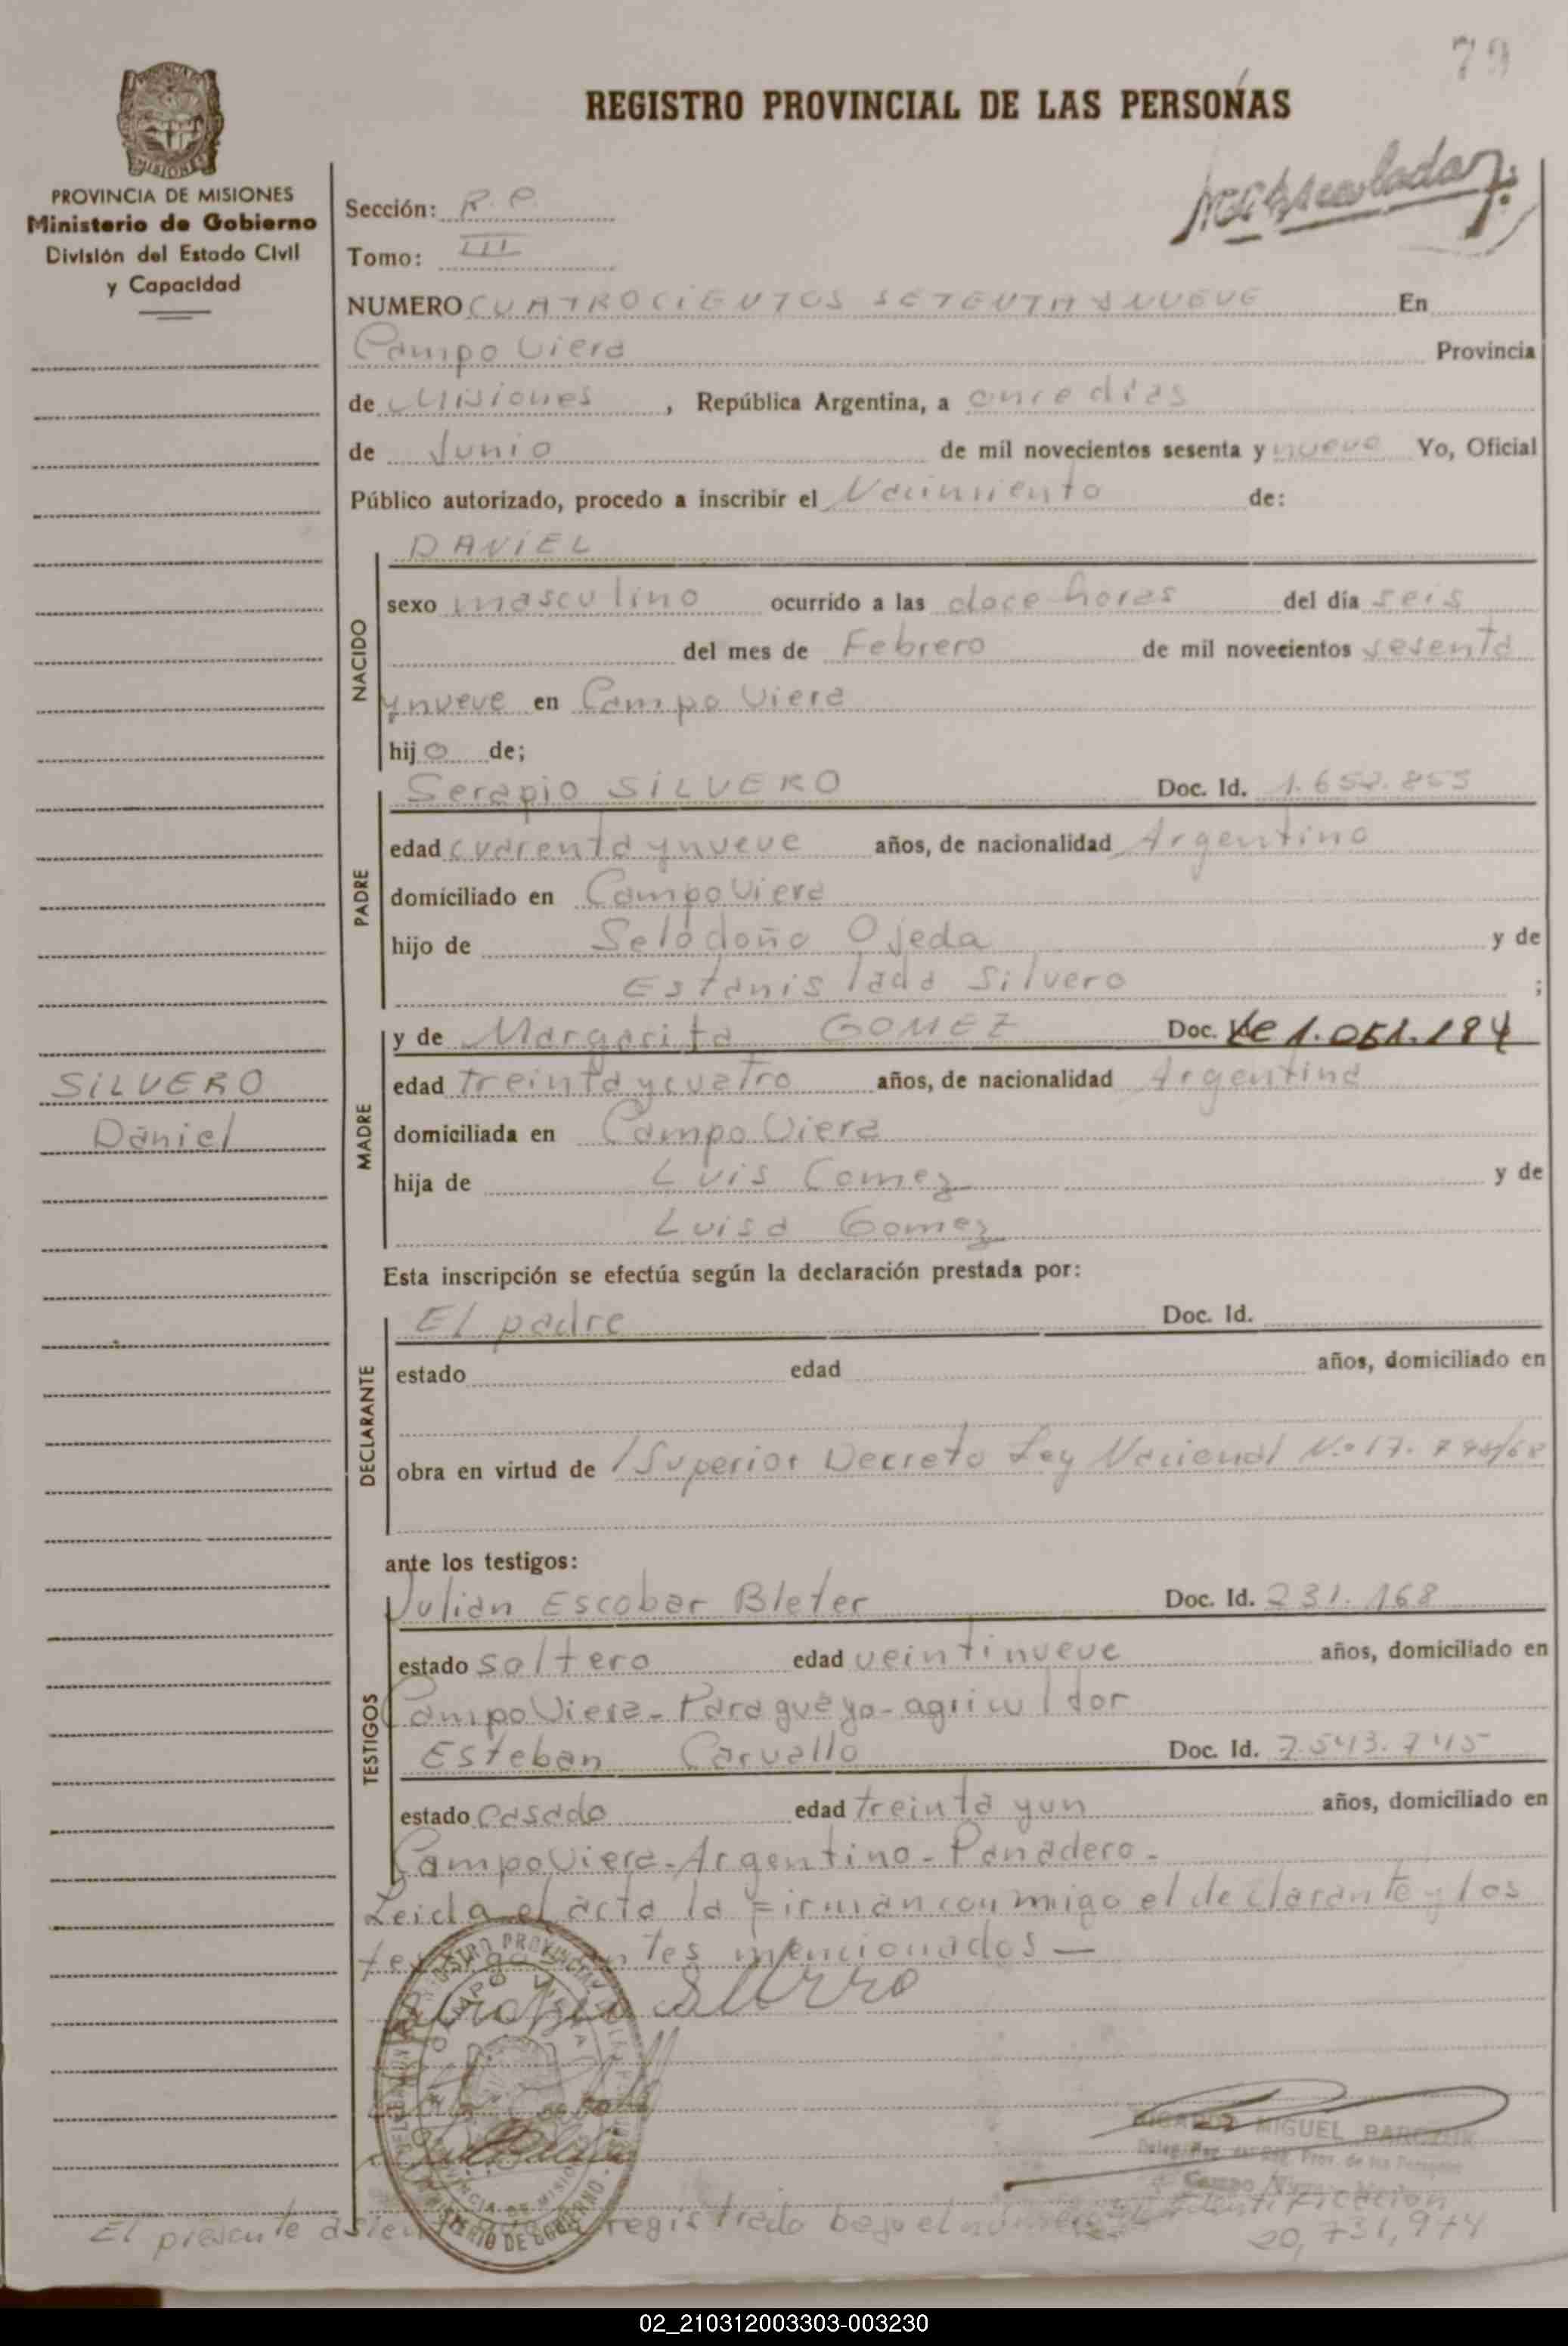 79
REGISTRO PROVINCIAL DE LAS PERSONAS
MISIONES
PROVINCIA DE MISIONES
Ministerio de Gobierno
División del Estado Civil
y Capacidad
Sección: R. P.
Tomo: III
NUMERO CUATROCIENTOS SETENTA Y NUEVE En
Campo Viera Provincia
de Misiones , República Argentina, a once días
de Junio de mil novecientos sesenta y nueve Yo, Oficial
Público autorizado, procedo a inscribir el Nacimiento de:
NACIDO
DANIEL
sexo masculino ocurrido a las doce horas del día seis
del mes de Febrero de mil novecientos sesenta
y nueve en Campo Viera
hijo de;
PADRE
Serapio SILVERO Doc. Id. 1.652.855
edad cuarenta y nueve años, de nacionalidad Argentino
domiciliado en Campo Viera
hijo de Ojeda y de
Estanislada Silvero ;
MADRE
y de Margarita GOMEZ Doc. 1.051.184
edad treinta y cuatro años, de nacionalidad Argentina
domiciliada en Campo Viera
hija de Luis Gomez y de
Luisa Gomez
SILVERO
Daniel
Esta inscripción se efectúa según la declaración prestada por:
DECLARANTE
El padre Doc. Id.
estado edad años, domiciliado en
obra en virtud de Superior Decreto Ley Nacional N.º 17.
ante los testigos:
TESTIGOS
Julian Escobar Bleter Doc. Id. 231.168
estado soltero edad veintinueve años, domiciliado en
Campo Viera - Paraguayo - agricultor
Esteban Carvallo Doc. Id. 7.543.745
estado casado edad treinta y un años, domiciliado en
Campo Viera - Argentino - Panadero -
Leida el acta la firman con migo el declarante y los
mencionados —
MIGUEL
El presente registrado bajo el
identificacion
20,731,974
02_210312003303-003230